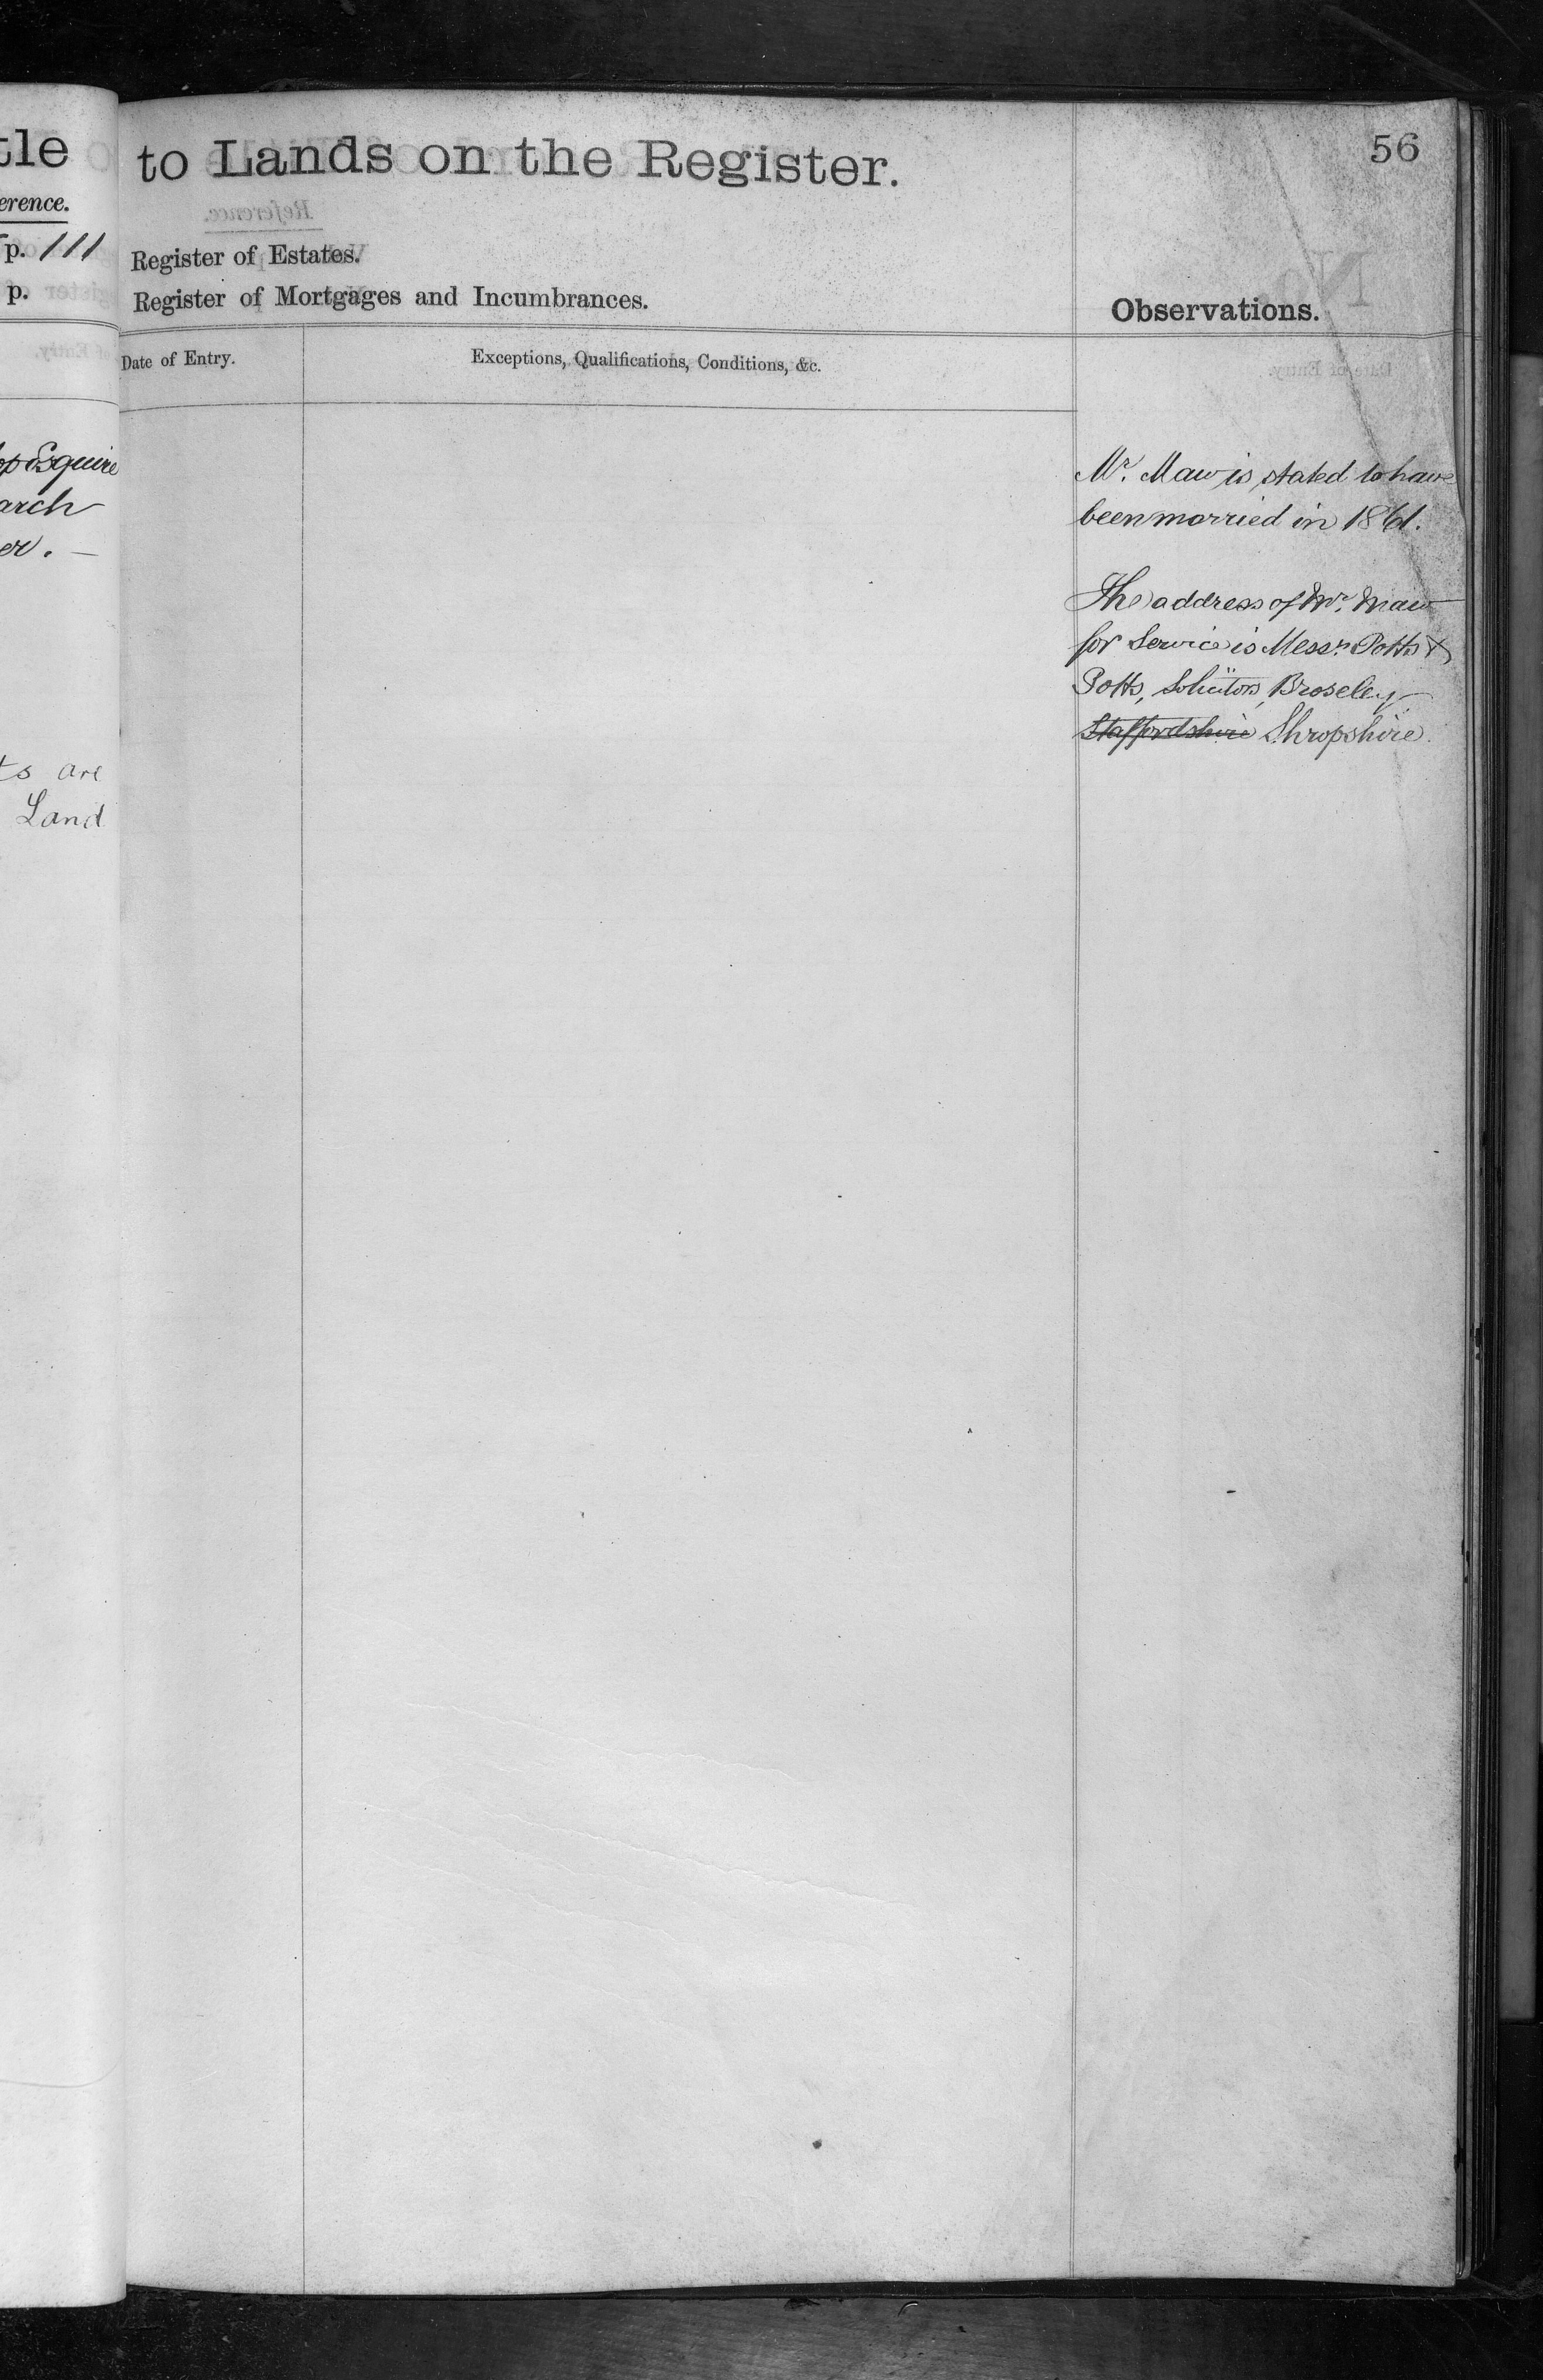 tle
erence.
p. 111
p.
op Esquire
arch
er. —
ts are
Land
56
to Lands on the Register.
Register of Estates.
Register of Mortgages and Incumbrances.
Observations.
Date of Entry.
Exceptions, Qualifications, Conditions, &c.
Mr. Maw is stated to have
been married in 1861.
The address of Mr. Maw
for Service is Messrs. Potts &
Potts, Solicitors, Broseley
Staffordshire Shropshire.